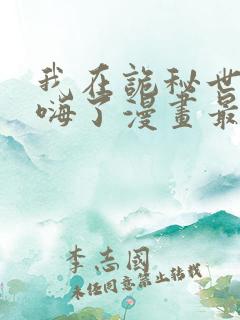 我在詭秘世
嗨了漫畫最
李志國
未经同意禁止转载